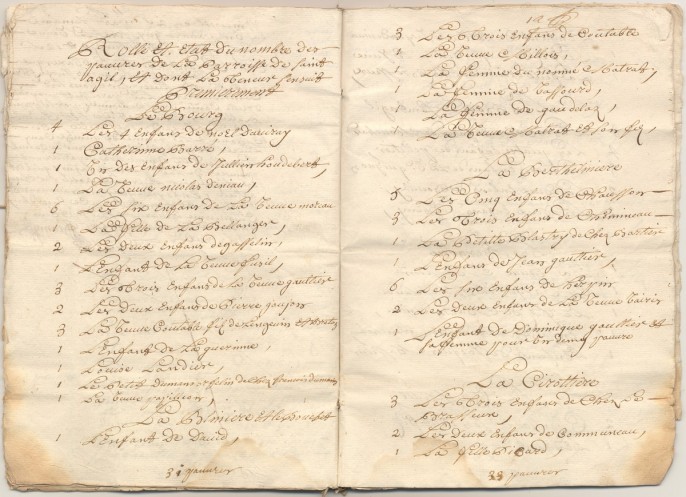 Rolle et Etat du nombre des
pauvres de La Parroisse de Saint
agil, et dont La teneur Ensuit
Premierement
Le Bourg
4 Les 4 Enfans de noel
1 Catherinne Barré,
1 Un des Enfans de Jullien houdebert,
1 La Veuve nicolas deniau,
6 Les six Enfans de La Veuve moreau
1 La fille de La Bellanger,
2 Les Deux Enfans de gasselin,
1 L'Enfant de La Veuve fusil,
3 Les Trois Enfans de La Veuve gaultier
2 Les Deux Enfans de Pierre goujon
3 La Veuve Coutable
1 L'Enfant de La guerinne
1 Louise Landier,
1 Le Petit
1 La Veuve papillion,
La Bliniere Et
1 L'Enfant de David,
31 pauvres
3 Les Trois Enfans de Coutable
1 La Veuve Millois,
1 La femme du nommé Matrat,
1 La femme de Tassourd,
1 La femme de gaudelas,
1 La Veuve Matrat Et son fils,
La Berthelniere
5 Les Cinq Enfans de
3 Les Trois Enfans de
1 La Petitte de Chez
1 L'Enfans de Jean gaultier,
6 Les six Enfans de
2 Les Deux Enfans de La Veuve
1 L'Enfant de Dominique gaultier et
sa femme pour Un demy pauvre
La Cirottiere
3 Les Trois Enfans de Chez Le
Brasseur,
2 Les Deux Enfans de Communeau,
1 La fille Picard,
33 pauvres